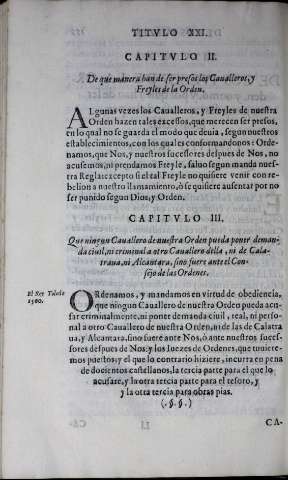 TITVLO XXI.
CAPITVLO II.
De que manera han de ser presos los Caualleros, y
Freyles de la Orden.
ALgunas vezes los Caualleros, y Freyles de nuestra
Orden hazen tales excessos, que merecen ser presos,
en lo qual no se guarda el modo que deuia, segun nuestros
establecimientos, con los quales conformandonos: Orde-
namos, que Nos, y nuestros sucessores despues de Nos, no
acusemos, ni prendamos Freyle, saluo segun manda nues-
tra Regla: excepto si el tal Freyle no quisiere venir con re-
belion a nuestro llamamiento, ò se quisiere ausentar por no
ser punido segun Dios, y Orden.
CAPITVLO III.
Que ningun Cauallero de nuestra Orden pueda poner deman-
da ciuil, ni criminal a otro Cauallero della, ni de Cala-
traua, ni Alcantara, sino fuere ante el Con-
sejo de las Ordenes.
El Rey Toledo
1560.
ORdenamos, y mandamos en virtud de obediencia,
que ningun Cauallero de nuestra Orden pueda acu-
sar criminalmente, ni poner demanda ciuil, real, ni perso-
nal a otro Cauallero de nuestra Orden, ni de las de Calatra
ua, y Alcantara, sino fuere ante Nos, ò ante nuestros suces-
sores despues de Nos: y los Iuezes de Ordenes, que tuuiere-
mos puestos: y el que lo contrario hiziere, incurra en pena
de docientos castellanos, la tercia parte para el que lo
acusare, y la otra tercia parte para el tesoro, y
y la otra tercia para obras pias.
(.§.§.)
Ll
CA-